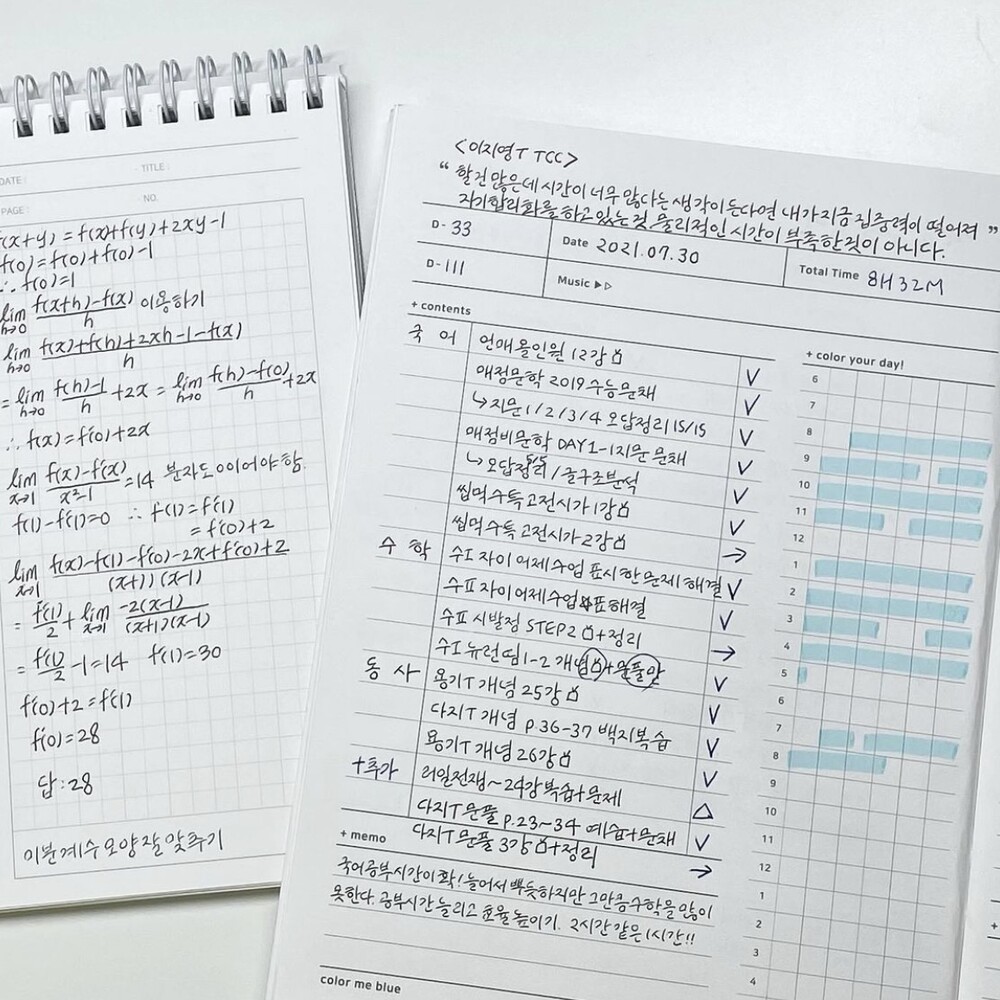 DATE:
TITLE:
PAGE:
NO.
f(x+y) = f(x)+f(y)+2xy-1
f(0)=f(0)+f(0)-1
∴ f(0)=1
lim h→0 f(x+h)-f(x)/h 이용하기
lim h→0 f(x)+f(h)+2xh-1-f(x)/h
= lim h→0 f(h)-1/h +2x = lim h→0 f(h)-f(0)/h +2x
∴ f'(x)=f'(0)+2x
lim x→1 f(x)-f'(x)/x²-1 =14 분자도 0이어야 함.
f(1)-f'(1)=0 ∴ f(1)=f'(1)
= f'(0)+2
lim x→1 f(x)-f(1)-f'(0)-2x+f'(0)+2/(x+1)(x-1)
= f'(1)/2 + lim x→1 -2(x-1)/(x+1)(x-1)
= f'(1)/2 -1=14 f'(1)=30
f'(0)+2=f'(1)
f'(0)=28
답:28
미분계수 모양 잘 맞추기
<이지영T TCC>
"할건 많은데 시간이 너무 없다는 생각이 든다면 내가 지금 집중력이 떨어져
자기합리화를 하고 있는 것. 물리적인 시간이 부족한 것이 아니다."
D-33
Date 2021.07.30
Total Time 8H 32M
D-111
Music ▶▷
+ contents
+ color your day!
국어 언매 올인원 12강
매정문학 2019 수능문채
↳지문1/2/3/4 오답정리 15/15
매정비문학 DAY1-1지문 문채
↳오답정리 5/5 /글구조분석
씹먹 수특 고전시가 1강
씹먹 수특 고전시가 2강
수학 수I 자이 어제 수업 표시한 문제 해결
수II 자이 어제 수업 표 해결
수II 시발점 STEP2 +정리
수I 뉴런 띰1-2 개념+문풀만
동사 용기T 개념 25강
다지T 개념 p.36-37 백지복습
용기T 개념 26강
+추가 러일전쟁~24강 복습+문제
다지T 문풀 p.23~34 예습+문채
다지T 문풀 3강 +정리
6
7
8
9
10
11
12
1
2
3
4
5
6
7
8
9
10
11
12
1
2
3
4
+ memo
국어공부시간이 확! 늘어서 뿌듯하지만 그만큼 수학을 많이
못한다. 공부시간 늘리고 효율 높이기. 2시간 같은 1시간!!
color me blue